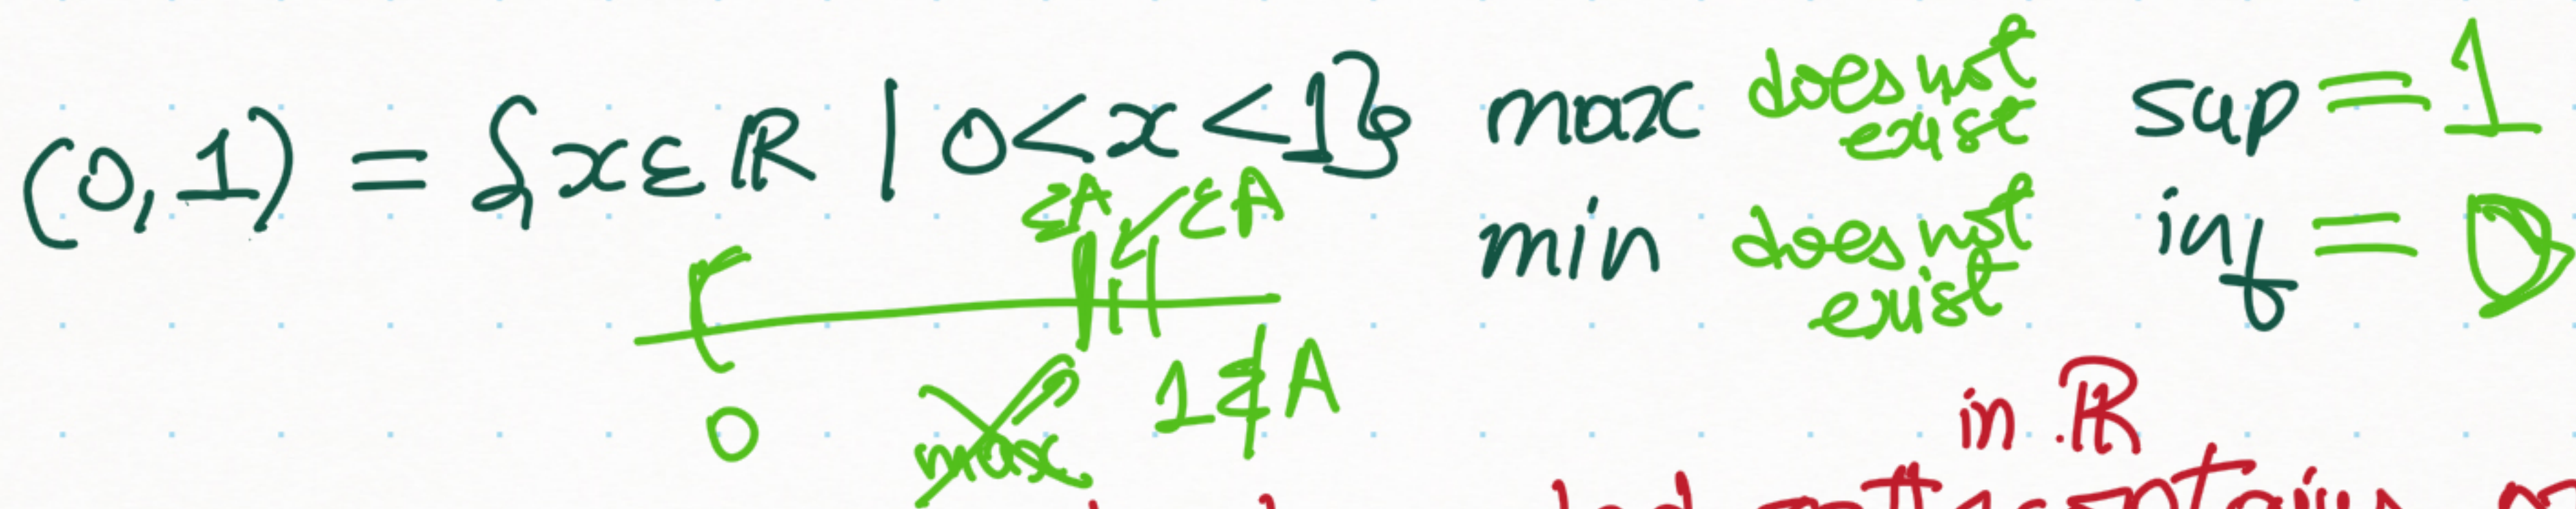 (0,1) = {x ∈ ℝ | 0 < x < 1} max does not exist sup = 1
∈A ∈A
min does not exist inf = 0
0 max 1 ∉ A
in ℝ